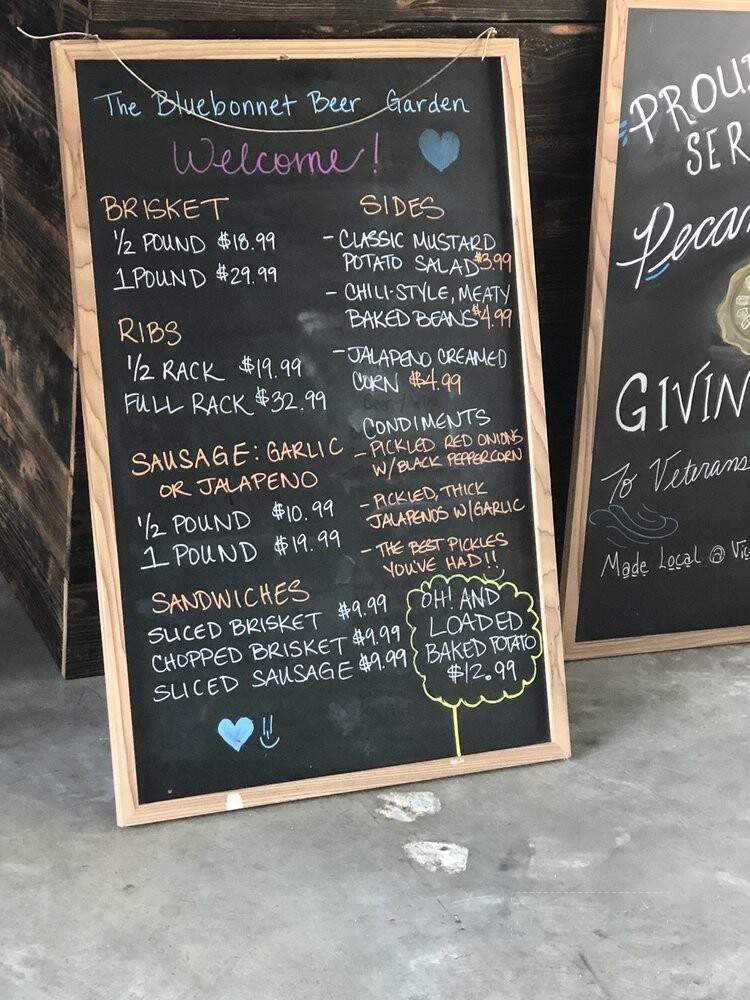 The Bluebonnet Beer Garden
Welcome!
BRISKET
1/2 POUND $18.99
1 POUND $29.99
RIBS
1/2 RACK $19.99
FULL RACK $32.99
SAUSAGE: GARLIC
OR JALAPENO
1/2 POUND $10.99
1 POUND $19.99
SANDWICHES
SLICED BRISKET $9.99
CHOPPED BRISKET $9.99
SLICED SAUSAGE $9.99
SIDES
- CLASSIC MUSTARD
POTATO SALAD $3.99
- CHILI-STYLE, MEATY
BAKED BEANS $4.99
- JALAPENO CREAMED
CORN $4.99
CONDIMENTS
- PICKLED RED ONIONS
W/BLACK PEPPERCORN
- PICKLED, THICK
JALAPENOS W/GARLIC
- THE BEST PICKLES
YOU'VE HAD!!
OH! AND
LOADED
BAKED POTATO
$12.99
PROU
SER
Pecan
GIVIN
To Veterans
Made Local @ Vi